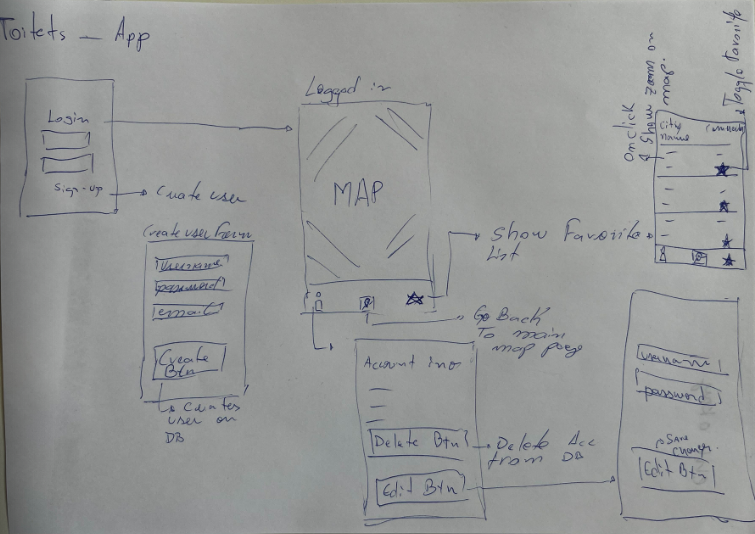 Toilets - App
Login
Sign-Up
Create user
Create user Form
username
password
email
Create
Btn
Creates
user on
DB
Logged in
MAP
Show Favorite
List
Go Back
To main
map page
Account info
Delete Btn
Edit Btn
Delete Acc
from DB
onClick
Show zoom on
map.
Toggle Favorite
City
name
username
password
Save
changes
Edit Btn